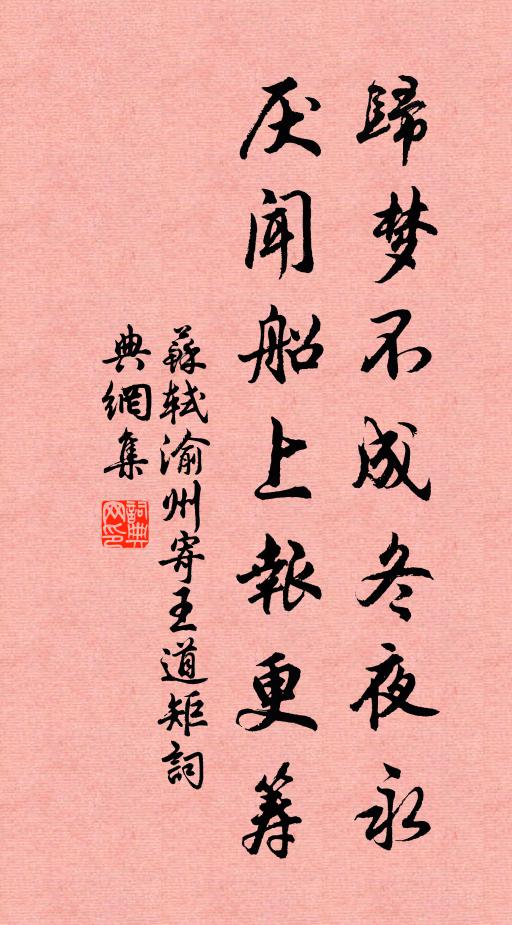 歸梦不成冬夜永
厌闻船上報更筹
蘇軾渝州寄王道矩詞
典網集
詞典
网印